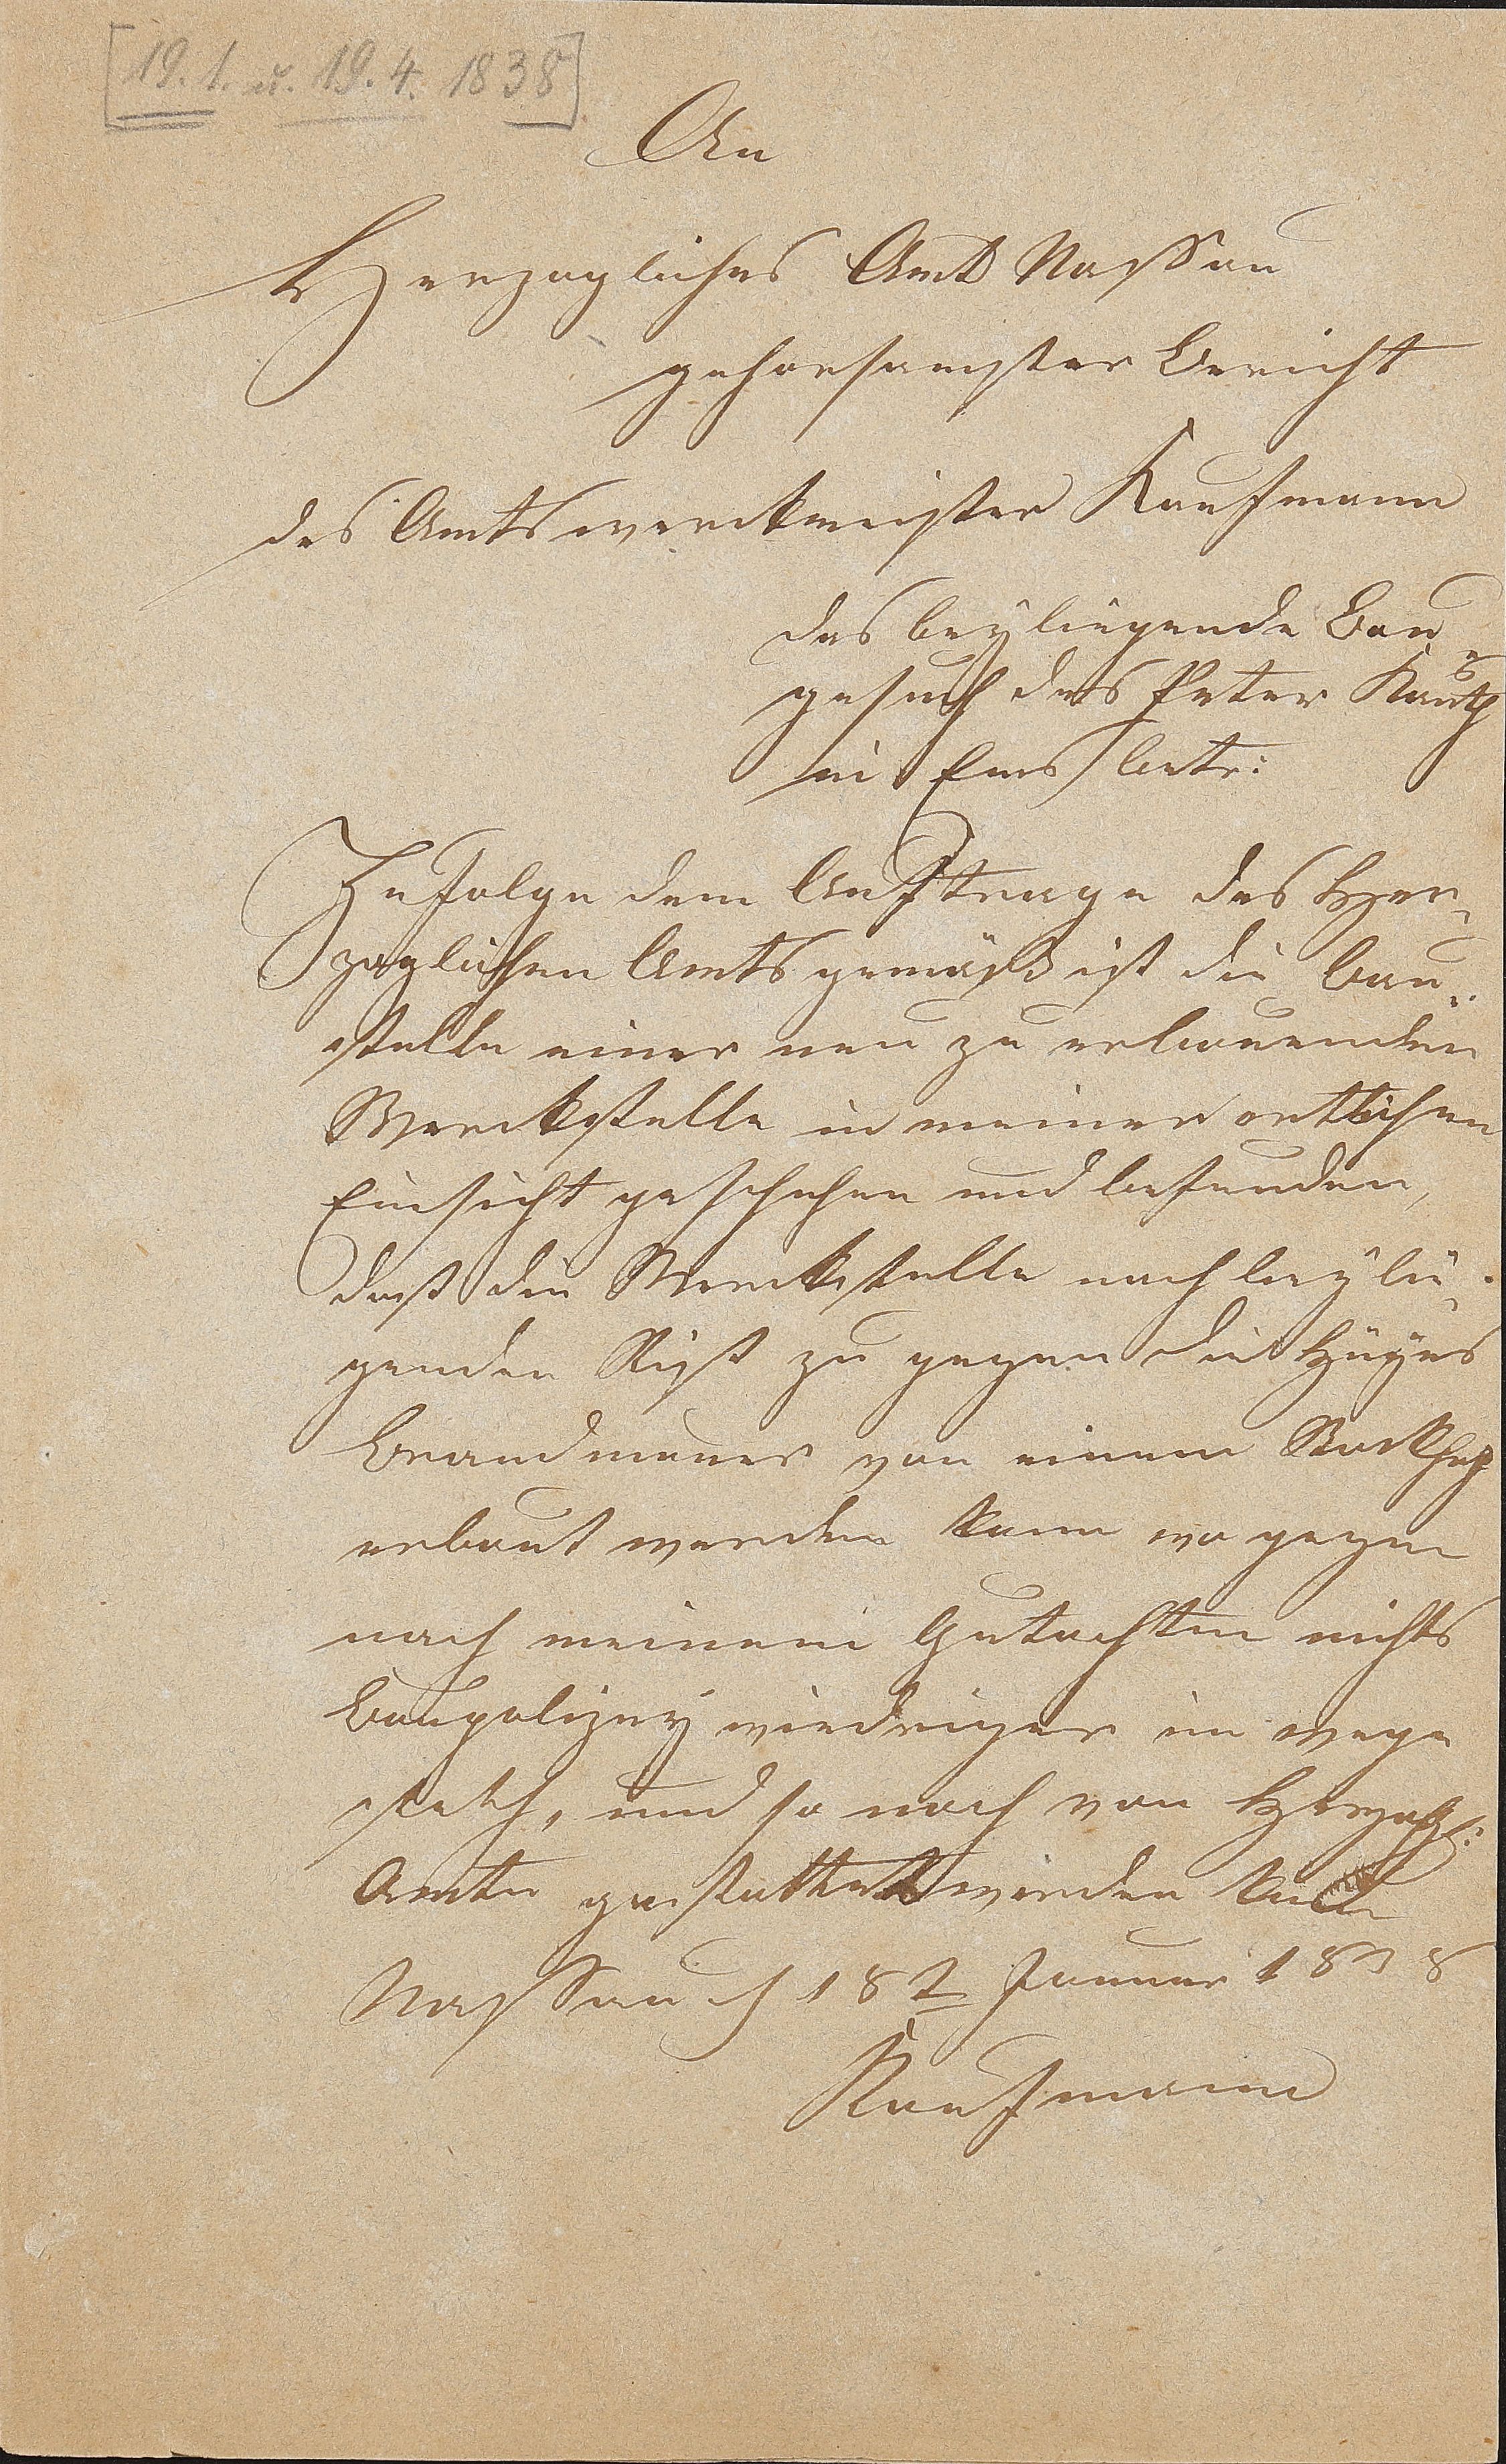 [19.1. u. 19.4. 1838]
An
Herzogliches Amt Nassau
gehorsamster Bericht
des Amtswerckmeister Kaufmann
das beÿliegende Bau¬
gesuch des Peter Kauth
in Ems betr:
Zufolge dem Auftrage des Her¬
zoglichen Amts gemäß ist die bau¬
stelle einer neu zu erbauenden
Werckstelle in meiner ortlichen
Einsicht geschehen und befunden,
daß die Werckstelle nach beÿlie¬
genden Riß zu gegen die
Brandmauer von einem Stock
erbaut werden kann wo gegen
nach meinem Gutachten nichts
Baupolizeÿ wiedriger im wege
steth, und so nach von Herzogl:
Amte gestattet werden
Nassau d 18t Januar 1838
Kaufmann